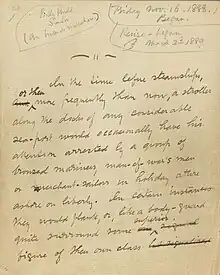 Billy Budd
Sailor
(An inside narrative)
Friday Nov. 16. 1888.
Began.
Revise - begun
March 2d 1889
In the time before steamships,
or then more frequently than now, a stroller
along the docks of any considerable
sea-port would occasionally have his
attention arrested by a group of
bronzed mariners, man-of-war's men
or merchant-sailors in holiday attire
ashore on liberty. In certain instances
they would flank, or, like a body-guard
quite surround some superior
figure of their own class